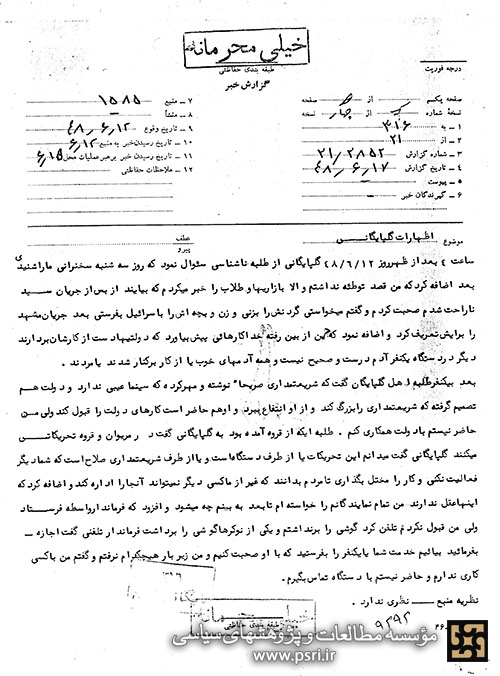 خیلی محرمانه
طبقه بندی حفاظتی
درجه فوریت
گزارش خبر
صفحه یکم از صفحه
نسخهٔ شماره یک از چهار نسخه
۱ ـ به ۳۱۶
۲ ـ از ۲۱
۳ ـ شماره گزارش ۲۱/۲۸۵۲
۴ ـ تاریخ گزارش ۴۸/۶/۱۷
۵ ـ پیوست
۶ ـ گیرندگان خبر
۷ ـ منبع ۱۵۸۵
۸ ـ منشأ
۹ ـ تاریخ وقوع ۴۸/۶/۱۲
۱۰ ـ تاریخ رسیدن خبر به منبع ۶/۱۲
۱۱ ـ تاریخ رسیدن خبر برهبر عملیات محل ۶/۱۵
۱۲ ـ ملاحظات حفاظتی
موضوع اظهارات گلپایگانی
عطف
پیرو
ساعت ۴ بعد از ظهر روز ۴۸/۶/۱۲ گلپایگانی از طلبه ناشناسی سئوال نمود که روز سه شنبه سخنرانی ما را شنیدی
بعد اضافه کرد که من قصد توطئه نداشتم والا بازاریها و طلاب را خبر میکردم که بیایند از بس از جریان مسجد
ناراحت شدم صحبت کردم و گفتم میخواستی گردنش را بزنی و زن و بچه اش را باسرائیل بفرستی بعد جریان مشهد
را برایش تعریف کرد و اضافه نمود که من از بین رفته خدا کارهائی پیش بیاورد که دولتیها دست از کارشان بردارند
دیگر در دستگاه یکنفر آدم درست و صحیح نیست و همه آدمهای خوب یا از کار برکنار شدند یا مردند .
بعد بیکنفر طلبه اهل گلپایگان گفت که شریعتمداری صریحا" نوشته و مهر کرده که سینما عیبی ندارد و دولت هم
تصمیم گرفته که شریعتمداری را بزرگ کند و از او انتفاع ببرد و او هم حاضر است کارهای دولت را قبول کند ولی من
حاضر نیستم با دولت همکاری کنم . طلبه ایکه از قروه آمده بود به گلپایگانی گفت در مریوان و قروه تحریکاتی
میکنند گلپایگانی گفت میدانم این تحریکات یا از طرف دستگاه است و یا از طرف شریعتمداری صلاح است که شما دیگر
فعالیت نکنی و کار را مختل بگذاری تا مردم بدانند که غیر از ما کسی دیگر نمیتواند آنجا را اداره کند و اضافه کرد که
اینها عقل ندارند من تمام نمایندگانم را خواسته ام تا بعد به بینم چه میشود و افزود که فرماندار واسطه فرستاد
ولی من قبول نکردم تلفن کرد گوشی را برنداشتم و یکی از نوکرها گوشی را برداشت فرماندار تلفنی گفت اجازه ـ
بفرمائید بیائیم خدمت شما یا یکنفر را بفرستید که با او صحبت کنیم و من زیر بار هیچکدام نرفتم و گفتم من با کسی
کاری ندارم و حاضر نیستم با دستگاه تماس بگیرم .
نظریه منبع ـ نظری ندارد .
خیلی محرمانه
طبقه بندی حفاظتی
۹۲۹۲
۴۶ـ
مؤسسه مطالعات و پژوهشهای سیاسی
www.psri.ir